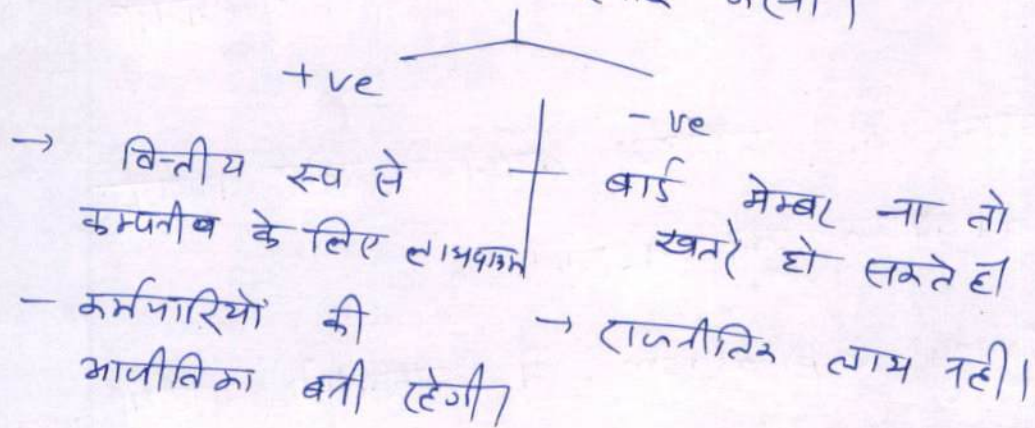 +ve
- ve
→ वित्तीय रूप से
कम्पनीब के लिए लाभदायक
- कर्मचारियों की
आजीविका बनी रहेगी।
बार्ड मेम्बर ना तो
खतरे हो सकते हैं।
→ राजनीतिक लाभ नही।